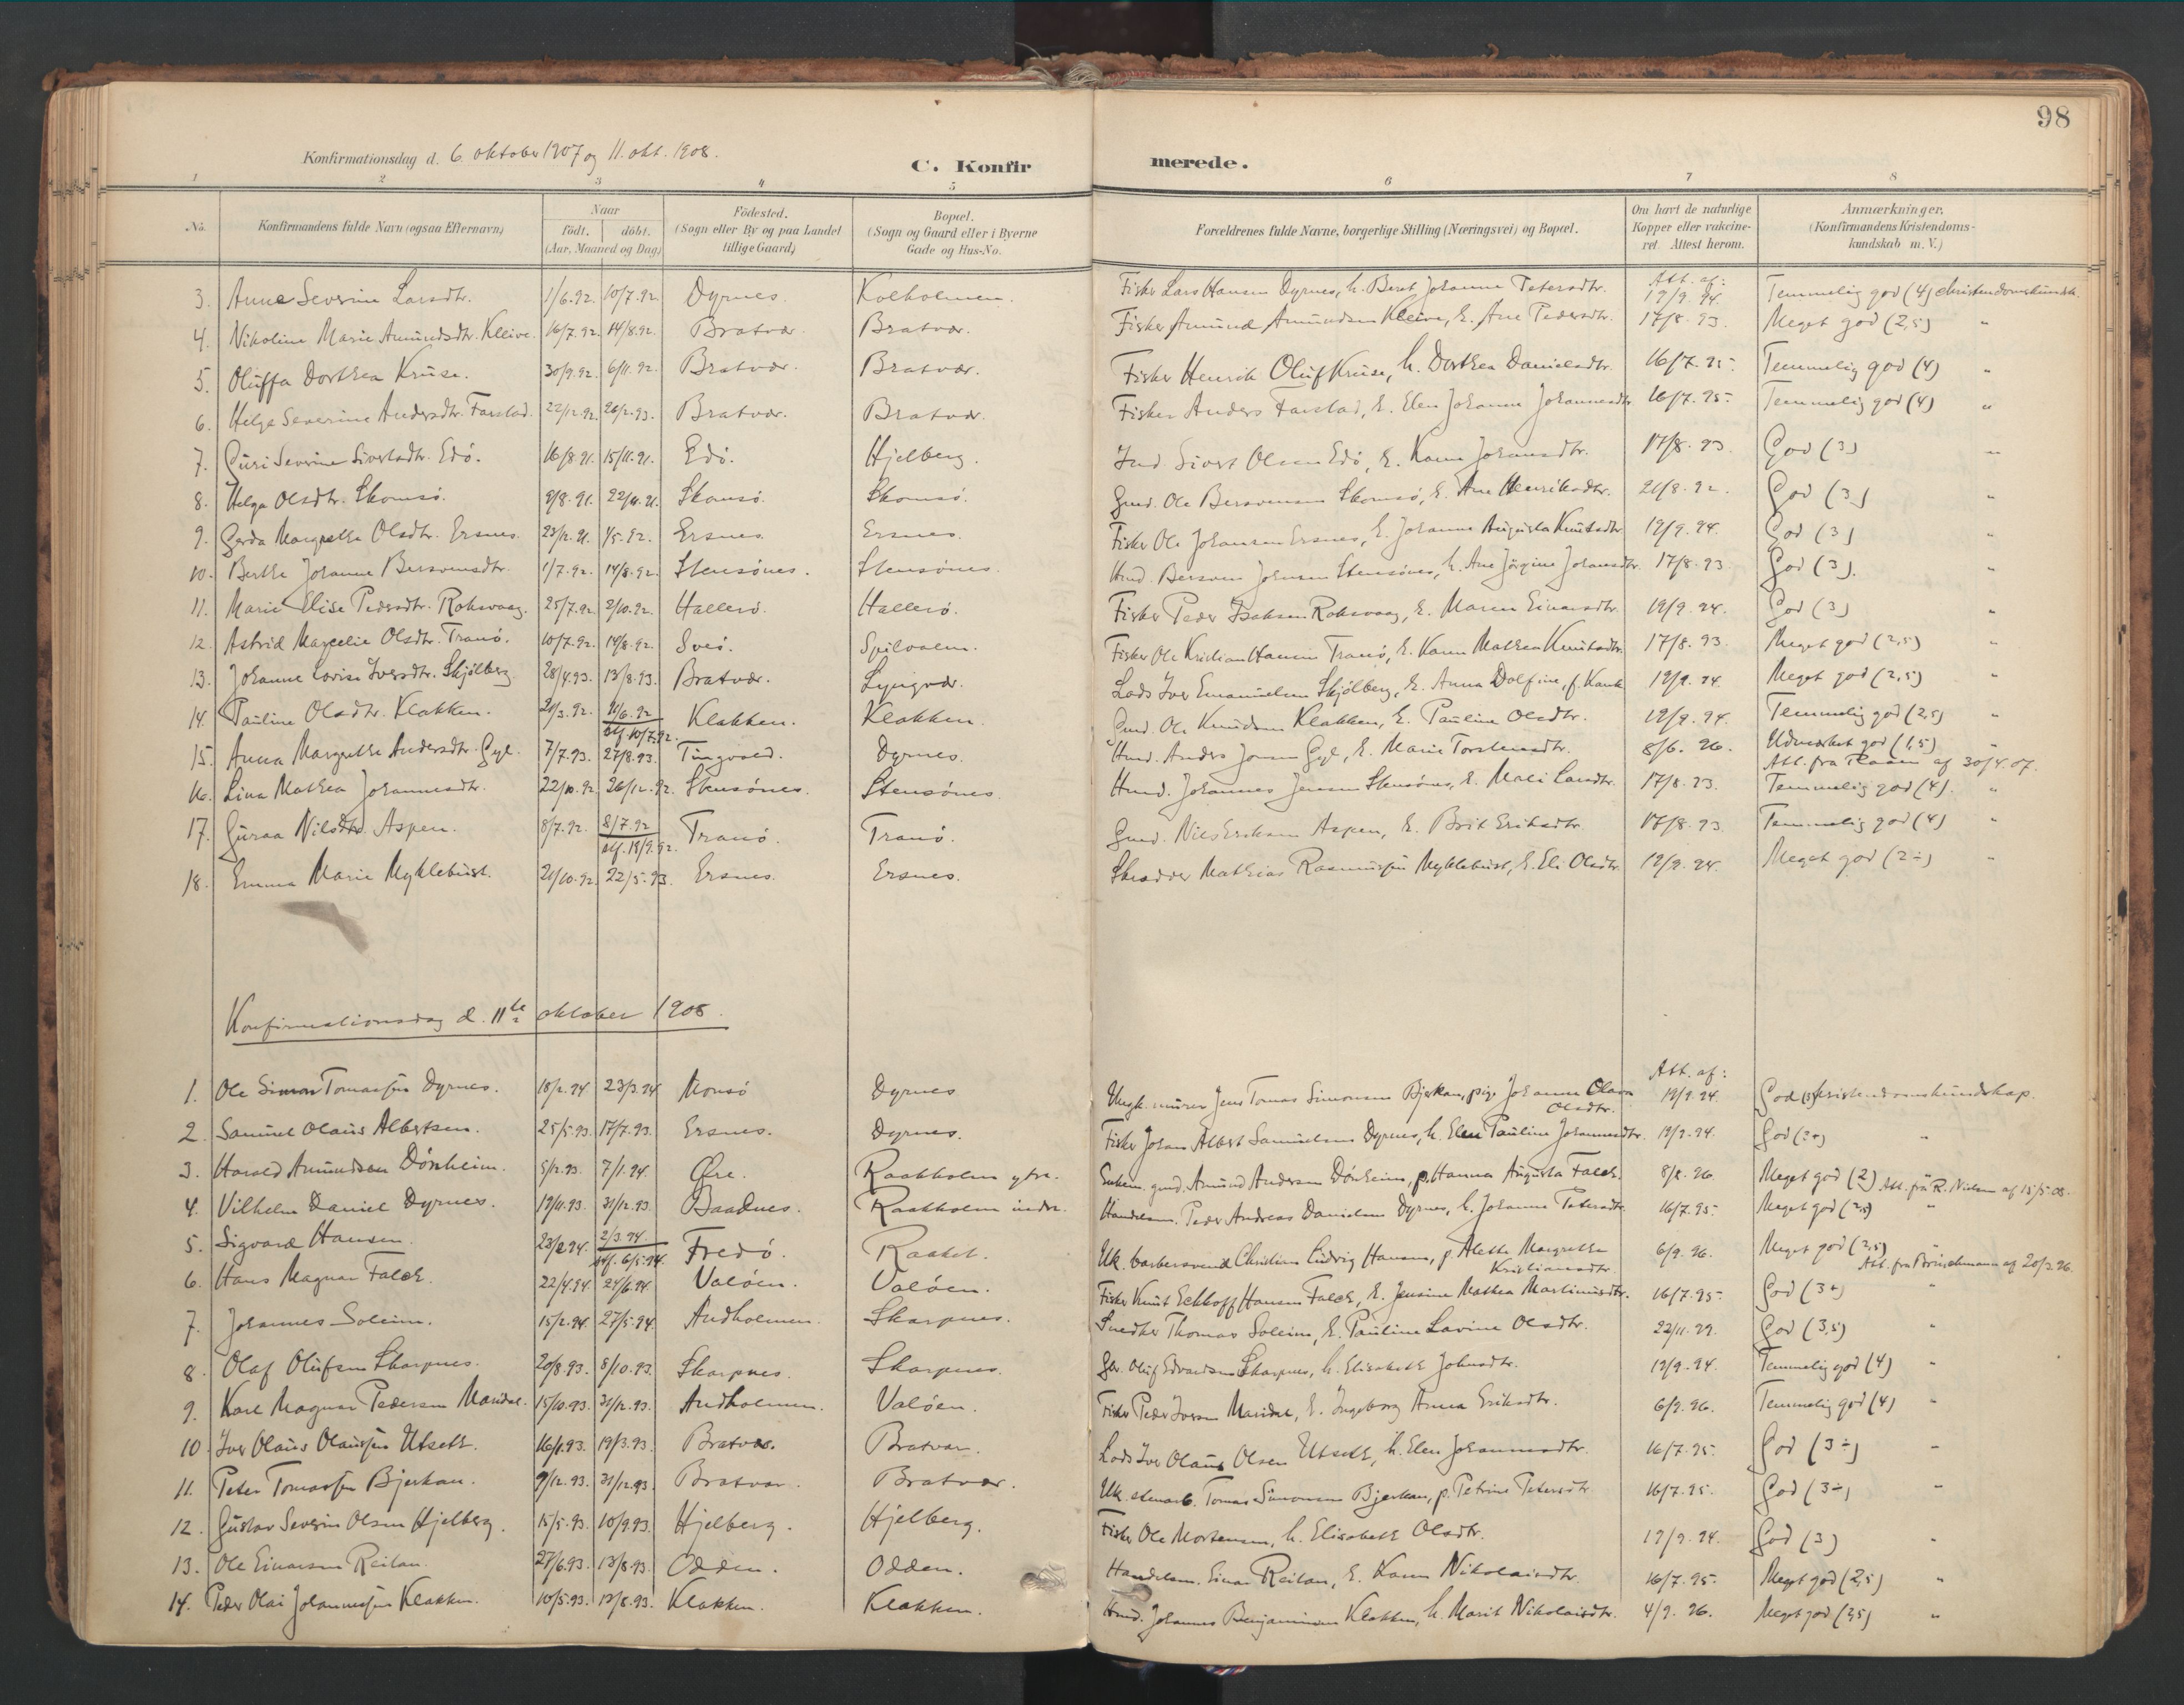 98
Konfirmationsdag d. 6. oktober 1907 og 11. okt. 1908.
C. Konfirmerede.
1 2 3 4 5 6 7 8
No.
Konfirmandens fulde Navn (ogsaa Efternavn)
Naar
födt. döbt.
(Aar, Maaned og Dag)
Födested.
(Sogn eller By og paa Landet
tillige Gaard)
Bopæl.
(Sogn og Gaard eller i Byerne
Gade og Hus-No.
Forældrenes fulde Navne, borgerlige Stilling (Næringsvei) og Bopæl.
Om havt de naturlige
Kopper eller vakcine-
ret Attest herom.
Anmærkninger.
(Konfirmandens Kristendoms-
kundskab m. V.)
Att. af:
3. Anne Severine Larsdtr. 1/6.92. 10/7.92. Dyrnes. Kolholmen. Fisker Lars Hansen Dyrnes, h. Beret Johanne Petersdtr. 19/9. 94. Temmelig god (4) christendomskundsk.
4. Nikoline Marie Amundsdtr. Kleive. 16/7.92. 14/8.92. Bratvær. Bratvær. Fisker Amund Amundsen Kleive, h. Ane Pedersdtr. 17/8. 93. Meget god (2,5) "
5. Oluffa Dorthea Kruse. 30/9.92. 6/11.92. Bratvær. Bratvær. Fisker Henrik Oluf Kruse, h. Dorthea Danielsdtr. 16/7.95. Temmelig god (4) "
6. Helga Severine Andersdtr. Farstad. 22/12.92. 26/2.93. Bratvær. Bratvær. Fisker Anders Farstad, h. Elen Johanne Johannesdtr. 16/7.95. Temmelig god (4) "
7. Guri Severine Sivertsdtr. Edö. 16/8.91. 15/11.91. Edö. Hjelberg. Sivert Olsen Edö, h. Karen Johansdtr. 17/8.93. God (3) "
8. Helga Olsdtr. Skomsö. 9/8.91. Skomsö. Skomsö. Gmd. Ole Bersvensen Skomsö, h. Ane Henriksdtr. 21/8.92. God (3) "
9. Gerda Margrethe Olsdtr. Ersnes. 23/12.91. 1/5.92. Ersnes. Ersnes. Fisker Ole Johansen Ersnes, h. Johanne Augusta Knutsdtr. 19/9.94. God (3) "
10. Berthe Johanne Bersvensdtr. 1/7.92. 14/8.92. Stensönes. Stensönes. Hmd. Bersven Johnsen Stensönes, h. Ane Jörgine Johansdtr. 17/8.93 God (3). "
11. Marie Elise Pedersdtr. Roksvaag. 25/7.92. 2/10.92. Hallerö. Hallerö. Fisker Peder Isaksen Roksvaag, h. Maren Einarsdtr. 19/9.94. God (3) "
12. Astrid Marselie Olsdtr. Tranö. 10/7.92. 14/8.92. Sveö. Spilvalen. Fisker Ole Kristian Hansen Tranö, h. Karen Mathea Knutsdtr. 17/8.93. Meget god (2,5) "
13. Johanne Lovise Iversdtr. Skjölberg. 28/4.93. 13/8.93. Bratvær. Lyngvær. Lods Iver Emanuelsen Skjölberg, h. Anna Dolfine, f. 19/9.94. Meget god (2,5) "
14. Pauline Olsdtr. Klakken. 21/3.92. 21/6.92 stf. 10/7.92. Klakken. Klakken. Gmd. Ole Knudsen Klakken, h. Pauline Olsdtr. 19/9.94. Temmelig god (2,5) "
15. Anna Margrethe Andersdtr. Gyl. 7/7.93. 27/8.93. Tingvold. Dyrnes. Hmd. Anders Jonsen Gyl, h. Marie Torstensdtr. 8/6. 96. Udmærket god (1,5) "
Att. fra af 30/4.07.
16. Lina Mathea Johannesdtr. 22/10.92. 26/12.92. Stensönes. Stensönes. Hmd. Johannes Jensen Stensönes, h. Mali Larsdtr. 17/8.93. Temmelig god (4). "
17. Guraa Nilsdtr. Aspen. 8/7.92. 8/7.92 stf. 18/9.92. Tranö. Tranö. Gmd. Nils Eriksen Aspen, h. Brit Eriksdtr. 17/8.93. Temmelig god (4) "
18. Emma Marie Myklebust. 21/10.92. 22/5.93. Ersnes. Ersnes. Skrædder Mathias Rasmussen Myklebust, h. Eli Olsdtr. 19/9.94. Meget god (2÷) "
Konfirmationsdag d. 11te oktober 1908.
Att. af:
1. Ole Simon Tomassen Dyrnes. 18/2.94 23/3.94 Monsö Dyrnes Ungk. murer Jens Tomas Simonsen Bjerkan, pige Johanne Olava Olsdtr. 19/9.94. God (3) kristendomskundskap.
2. Samuel Olaus Albertsen. 25/5.93. 17/7.93. Ersnes. Dyrnes. Fisker Johan Albert Samuelsen Dyrnes, h. Elen Pauline Johannesdtr. 19/9.94. God (3+) "
3. Harald Amundsen Dönheim. 5/12.93. 7/1.94. Øre. Raakholm ytre. Enkem. gmd. Amund Andersen Dönheim, p. Hanna Augusta Falck. 8/8. 96 Meget god (2) Att. fra R. Nielsen af 15/5.08.
4. Vilhelm Daniel Dyrnes. 19/11.93. 31/12.93. Baadnes. Raakholm indre. Handelsm. Peder Andreas Danielsen Dyrnes, h. Johanne Petersdtr. 16/7.95. Meget god (2,5) "
5. Sigvard Hansen. 23/2.94. 2/3.94. stf. 6/5.94. Fredö. Raaket. Uk. barbersvend Christian Ludvig Hansen, p. Alette Margrethe Kristiansdtr. 6/9.96. Meget god (2,5) "
Att. fra af 20/3.96.
6. Hans Magnar Falck. 22/4.94. 24/6.94. Valöen. Valöen. Fisker Knut Eckhoff Hansen Falck, h. Jensine Mathea Martinusdtr. 16/7.95. God (3+) "
7. Johannes Soleim. 15/2.94. 27/5.94. Audholmen. Skarpnes. Snedker Thomas Soleim, h. Pauline Lavine Olsdtr. 22/11.99. God (3,5) "
8. Olaf Olufsen Skarpnes. 20/8.93. 8/10.93. Skarpnes. Skarpnes. Oluf Edvardsen Skarpnes, h. Elisabeth Johnsdtr. 19/9.94. Temmelig god (4) "
9. Karl Magnus Pedersen Maridal. 15/10.93. 31/12.93. Audholmen. Valöen. Fisker Peder Iversen Maridal, h. Ingeborg Anna Eriksdtr. 6/9.96. Temmelig god (4) "
10. Iver Olaus Olaussen Utseth. 16/1.93. 19/3.93. Bratvær. Bratvær. Lods Iver Olaus Olsen Utseth, h. Elen Johannesdtr. 16/7.95. God (3÷) "
11. Peter Tomassen Bjerkan. 9/12.93. 31/12.93. Bratvær. Bratvær. Uk. stenarb. Tomas Simonsen Bjerkan, p. Petrine Petersdtr. 16/7.95. God (3÷) "
12. Gustav Severin Olsen Hjelberg. 15/5.93. 10/9.93. Hjelberg. Hjelberg. Fisker Ole Mortensen, h. Elisabeth Olsdtr. 19/9.94. God (3) "
13. Ole Einarsen Reitan. 27/6.93. 13/8.93. Odden. Odden. Handelsm. Einar Reitan, h. Karen Nikolaisdtr. 16/7.95. Meget god (2,5) "
14. Peder Olai Johannessen Klakken. 10/5.93. 13/8.93. Klakken. Klakken. Hmd. Johannes Benjaminsen Klakken, h. Marit Nikolaisdtr. 4/9.96. Meget god (2,5) "